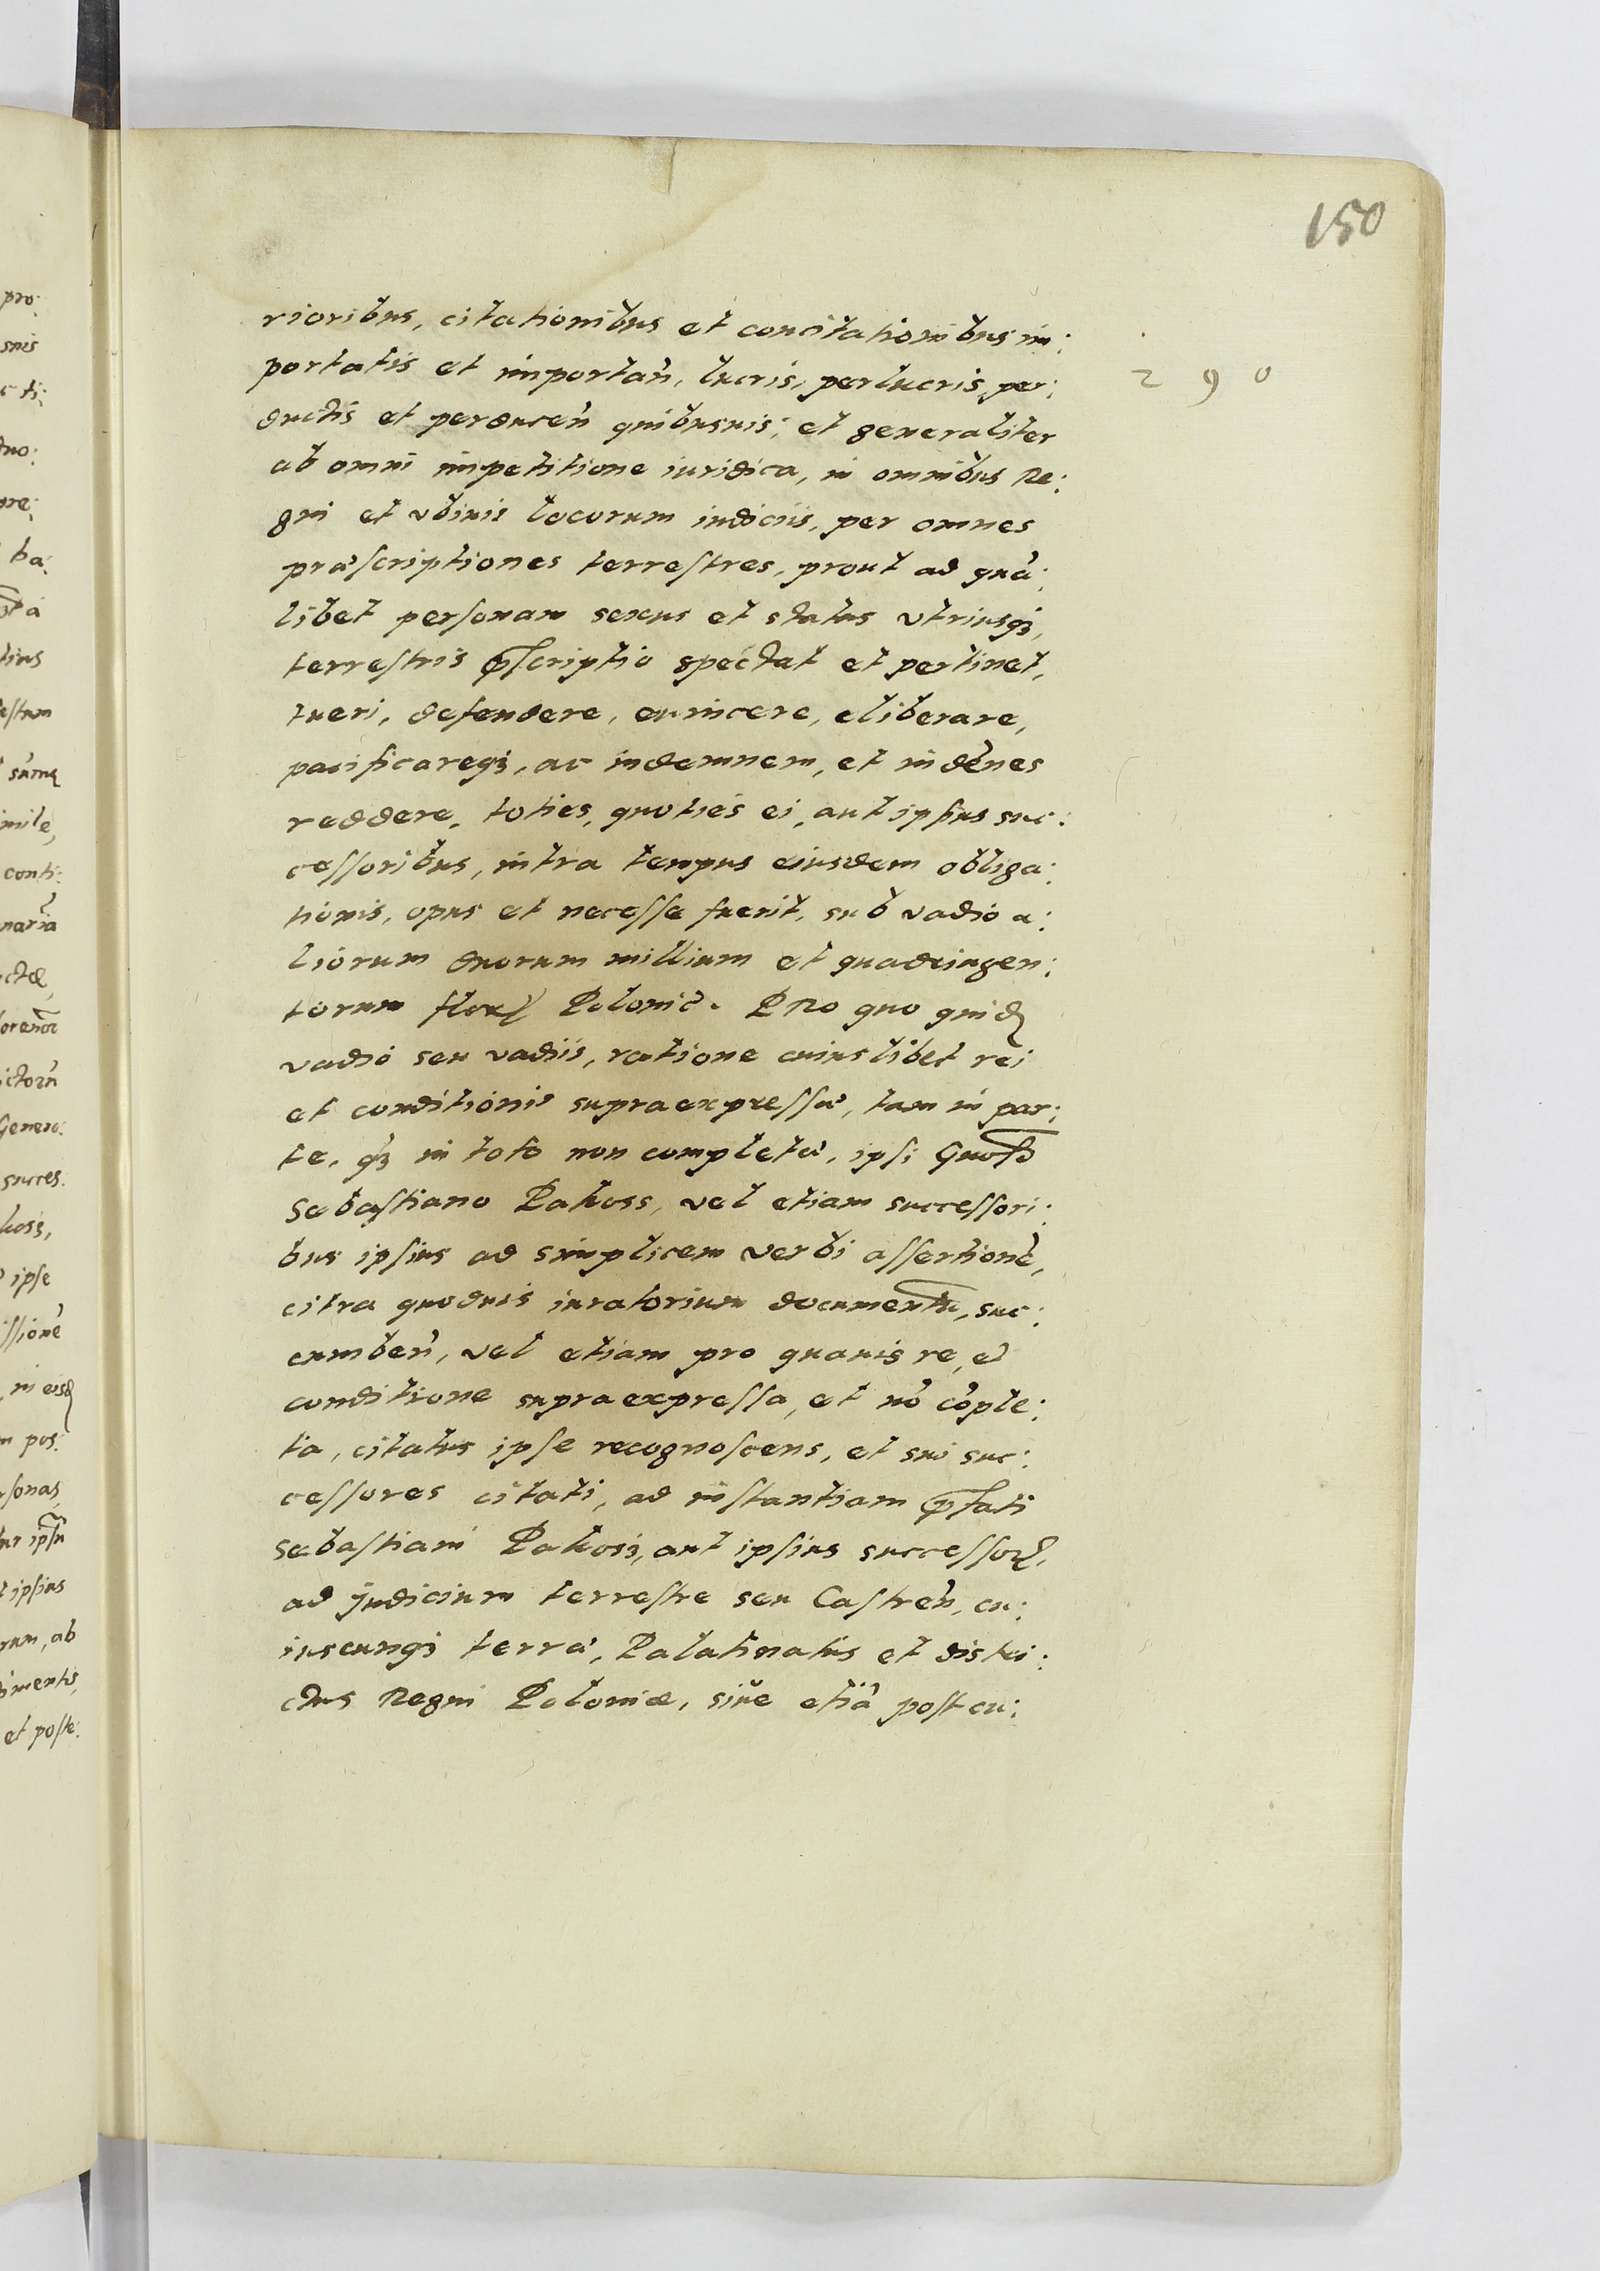 150
290
rioribus, citationibus et concitationibus im:
portatis et importan̄, lucris, perlucris, per:
ductis et perducen̄ quibusuis, et generaliter
ab omni impetitione iuridica, in omnibus Re:
gni et vbiuis locorum iudiciis, per omnes
præscriptiones terrestres, prout ad quā:
libet personam sexus et status vtriusqꝫ,
terrestris p̄scriptio spectat et pertinet,
tueri, defendere, euincere, eliberare,
pacificareqꝫ, ac indemnem, et indēnes
reddere, toties, quoties ei, aut ipsius suc:
cessoribus, intra tempus eiusdem obliga:
tionis, opus et necesse fuerit, sub vadio a:
liorum duorum millium et quadringen:
torum flor Polonic̄. PRo quo quid
vadio seu vadiis, ratione cuiuslibet rei
et conditionis supraexpressæ, tam in par:
te, qꝫ in toto non completæ, ipsi Gnoso
Sebastiano Pakoss, vel etiam successori:
bus ipsius ad simplicem verbi assertionē,
citra quoduis iuratorium documentū, suc:
cumben̄, vel etiam pro quauis re, et
conditione supraexpressa, et nō cōple:
ta, citatus ipse recognoscens, et sui suc:
cessores citati, ad instantiam p̄fati
Sebastiani Pakosz, aut ipsius successoꝝ,
ad Judicium terrestre seu Castren̄, cu:
iuscunqꝫ terræ, Palatinatus et distri:
ctus Regni Poloniæ, siue etiā post cu: